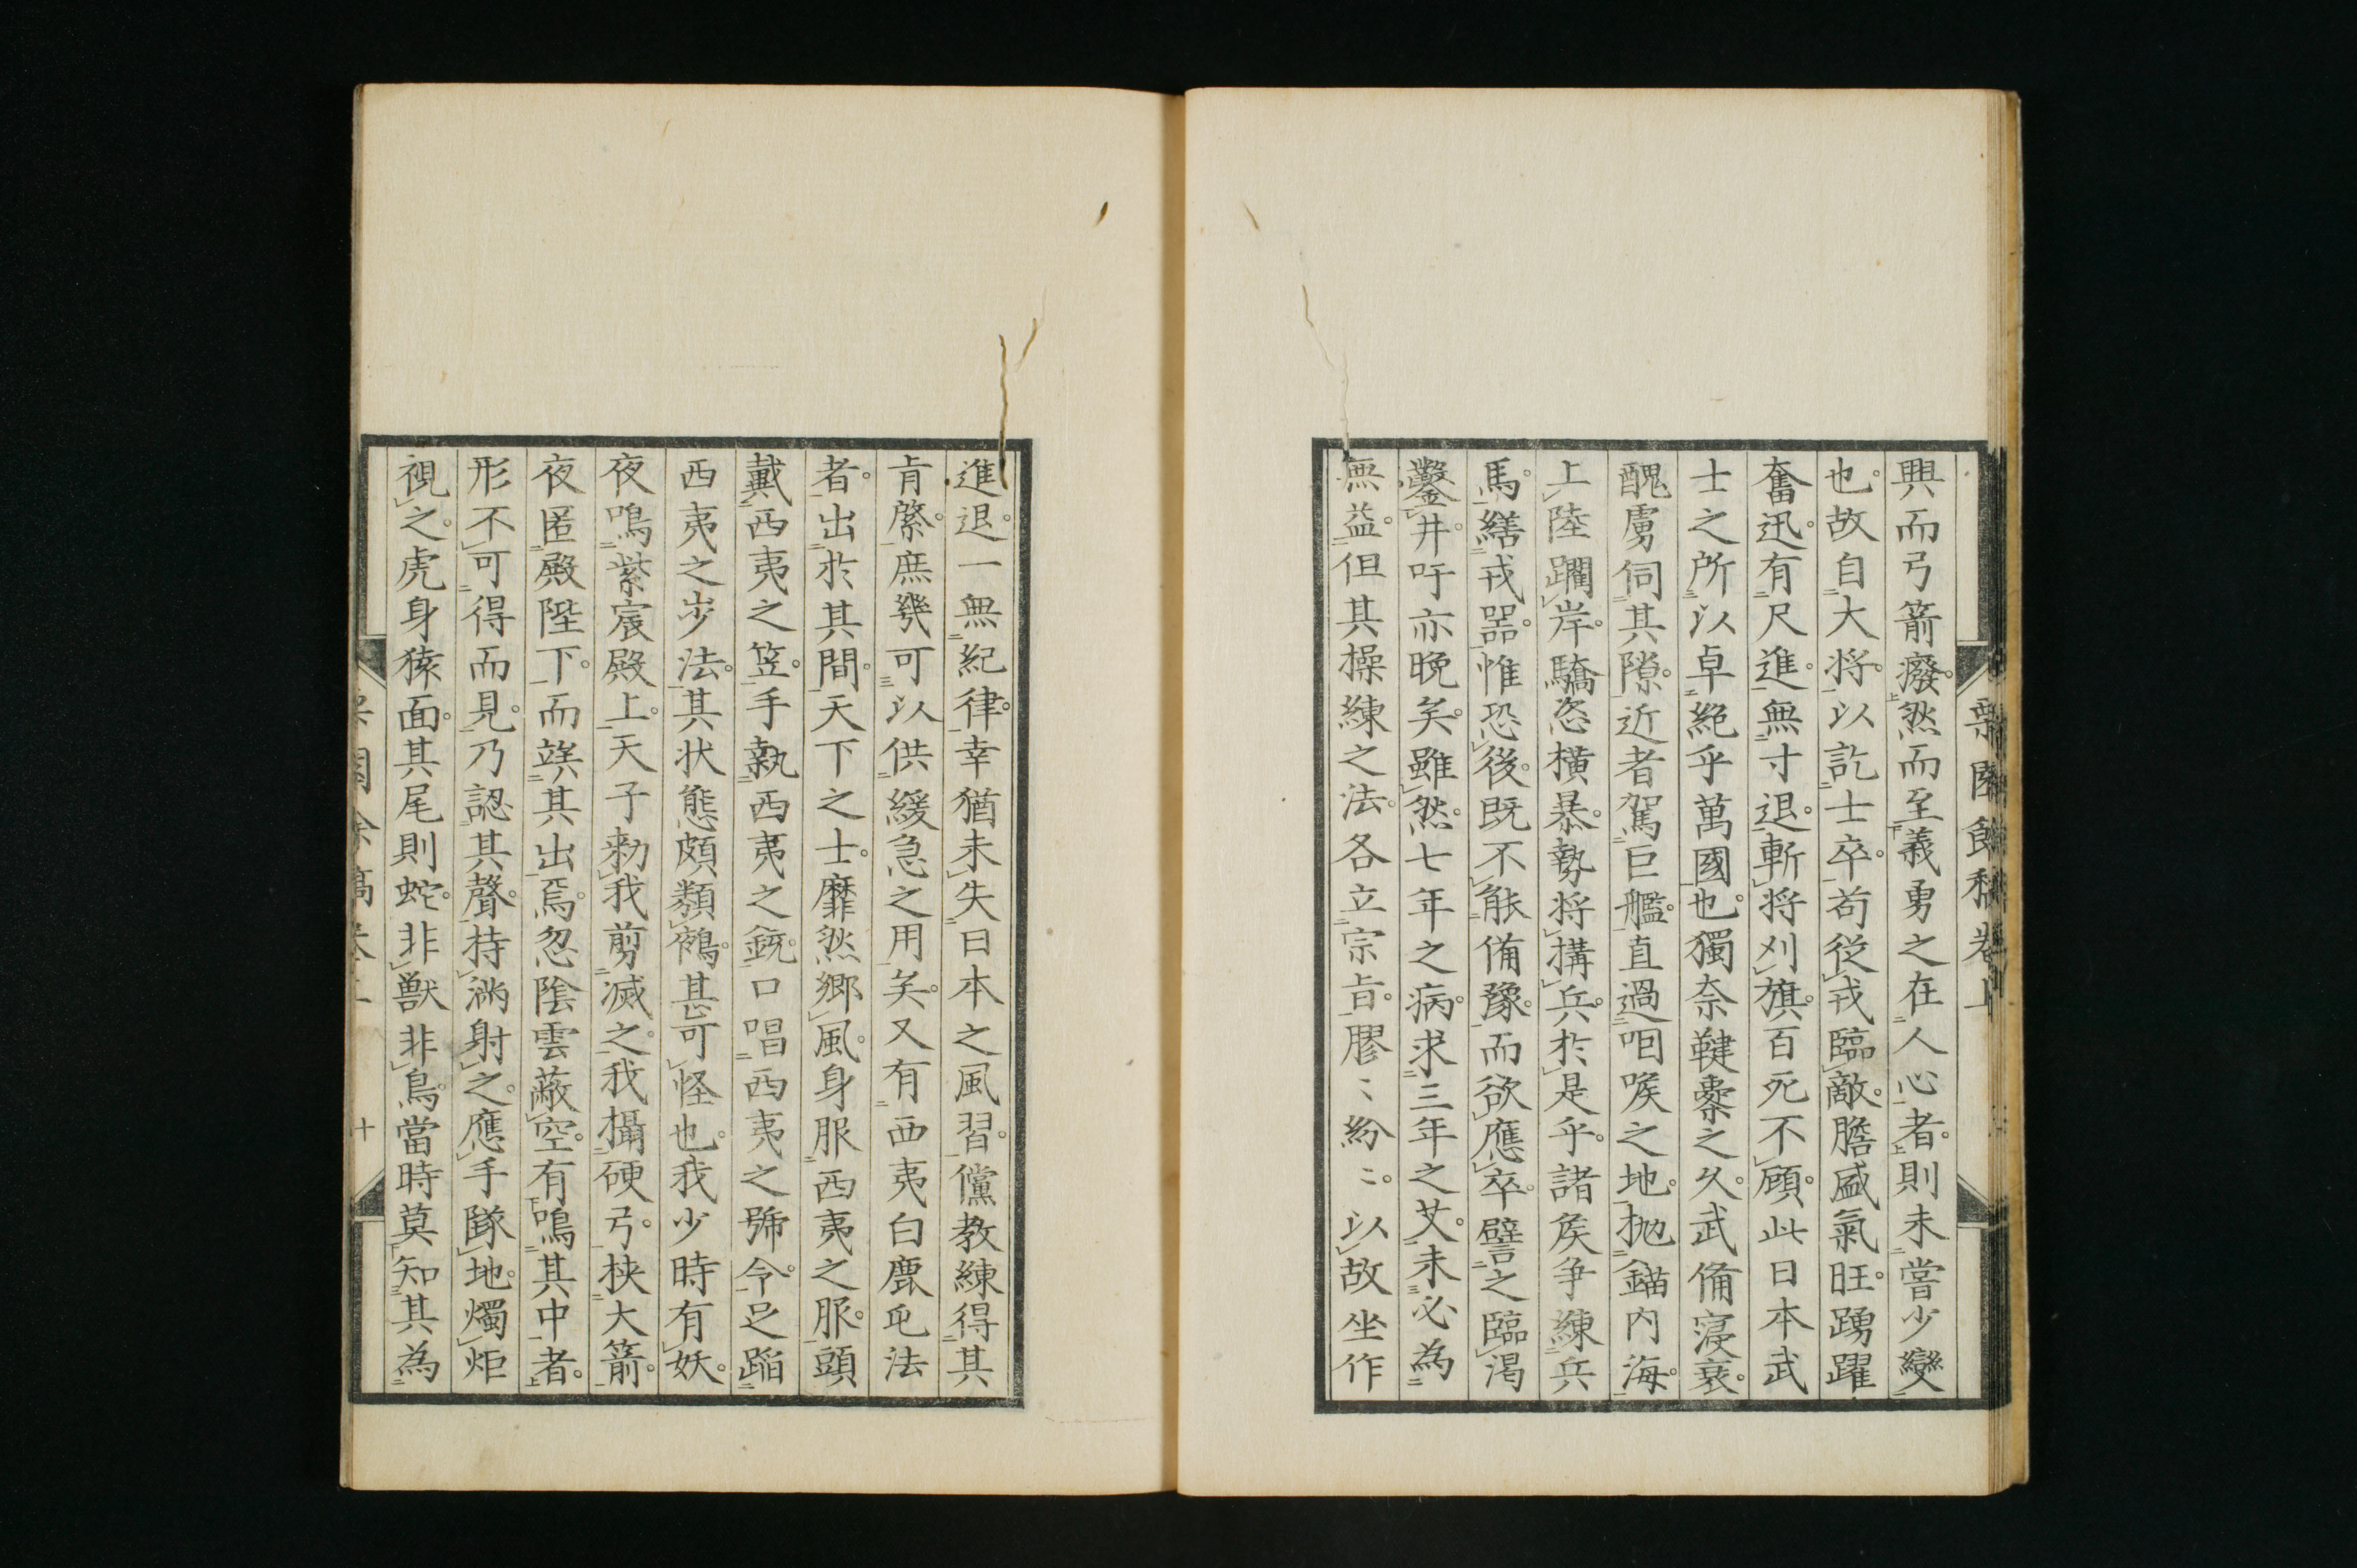 栗園餘稿卷上
興而弓箭癈。然而至義勇之在人心者。則未嘗少變
也。故自大将。以訖士卒。苟從戎臨敵。膽盛氣旺。踴躍
奮迅。有尺進。無寸退。斬将刈旗。百死不顧。此日本武
士之所以卓絕乎萬國也。獨奈鞬櫜之久。武備寖衰。
醜虜伺其隙。近者駕巨艦。直過咽喉之地。抛錨內海。
上陸躙岸。驕恣橫暴。勢将搆兵於是乎。諸侯爭練兵
馬。繕戎器。惟恐後。既不能備豫。而欲應卒。譬之臨渇
鑿井。吁亦晚矣。雖然。七年之病。求三年之艾。未必為
無益。但其操練之法。各立宗旨。膠〻紛〻。以故坐作
進退。一無紀律。幸猶未失日本之風習。儻教練得其
肯綮。庶幾可以供緩急之用矣。又有西夷白鹿乇法
者。出於其間。天下之士。靡然郷風。身服西夷之服。頭
戴西夷之笠。手執西夷之銃。口唱西夷之號令。足蹈
西夷之步法。其状態頗類鵺。甚可怪也。我少時有妖。
夜鳴紫宸殿上。天子勑我剪滅之。我攝硬弓。挟大箭。
夜匿殿陛下。而竢其出焉。忽陰雲蔽空。有鳴其中者。
形不可得而見。乃認其聲。持滿射之。應手隊地。燭炬
視之。虎身猿面。其尾則蛇。非獸非鳥。當時莫知其為
十